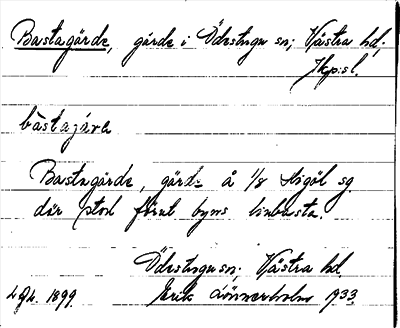 Bastagärde, gärde i Ödestugu sn; Västra hd;
Jkp:s l.
bastagära
Bastagärde, gärde å 1/8 Stigöl sg.
där stod förut byns linbasta.
Ödestugu sn; Västra hd.
1899. Erik Lönnerholm 1933.